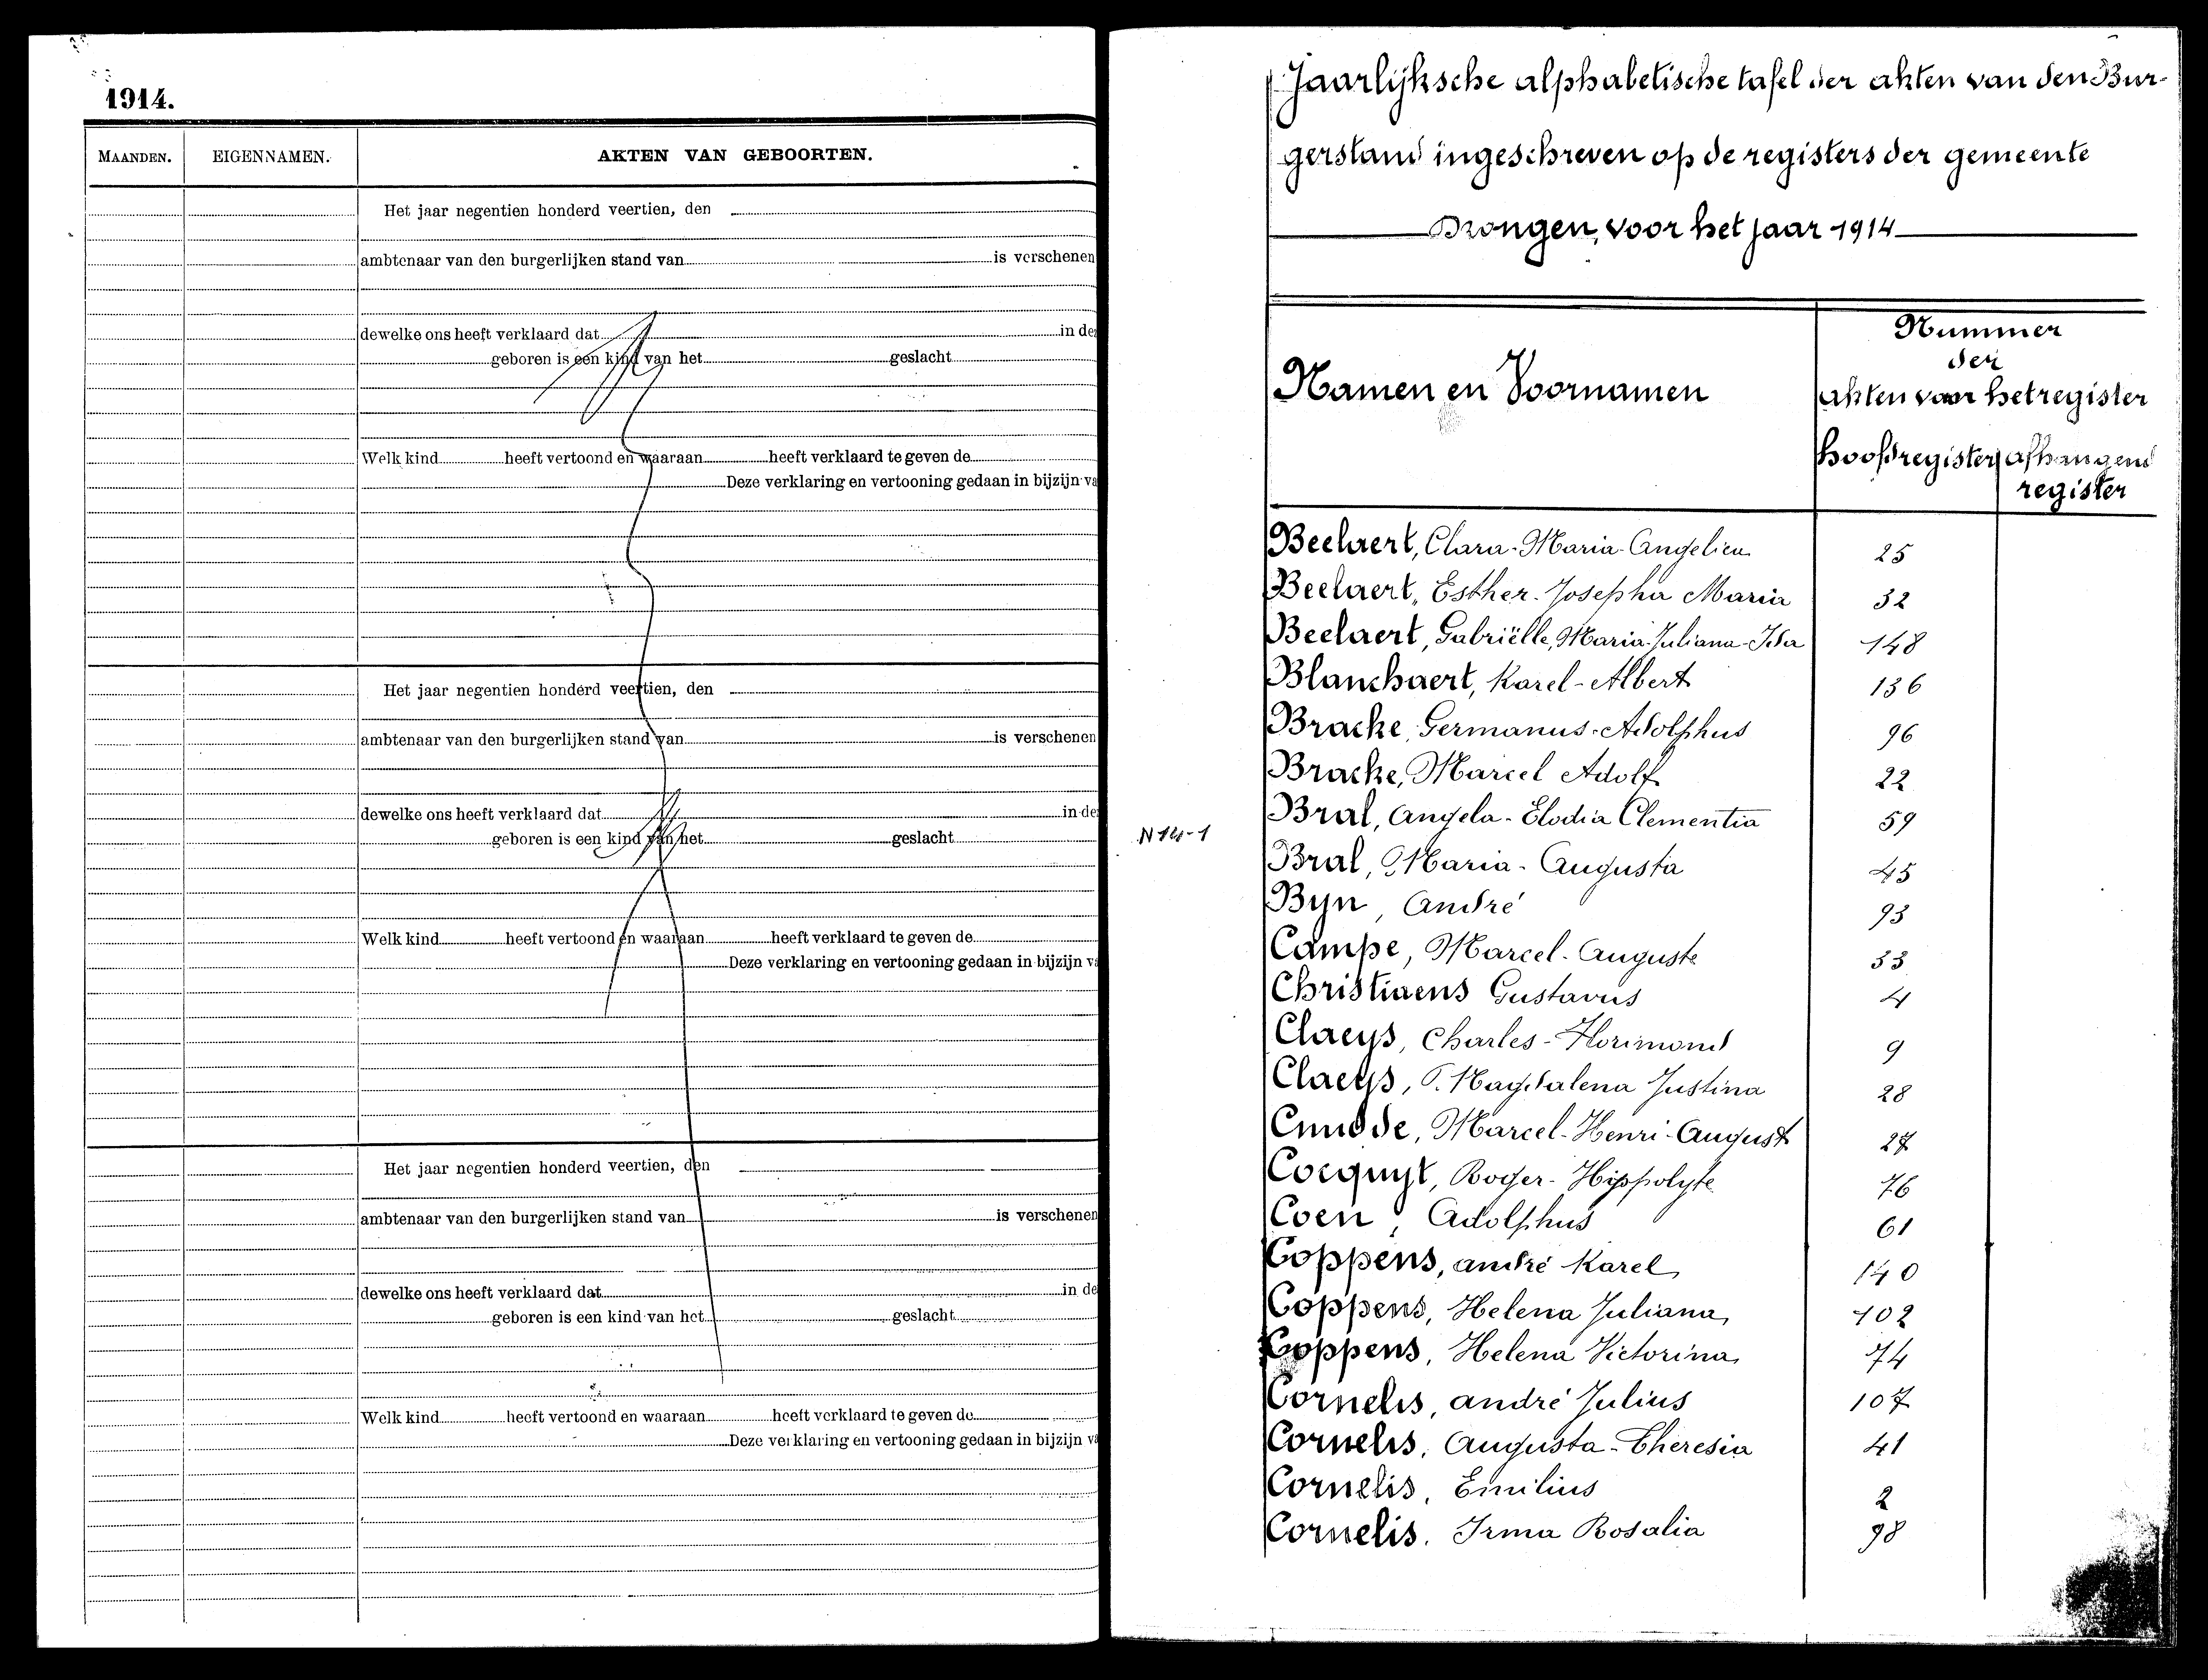 1914.
MAANDEN. EIGENNAMEN. AKTEN VAN GEBOORTEN.
Het jaar negentien honderd veertien, den
ambtenaar van den burgerlijken stand van is verschenen
dewelke ons heeft verklaard dat in de
geboren is een kind van het geslacht
Welk kind heeft vertoond en waaraan heeft verklaard te geven de
Deze verklaring en vertooning gedaan in bijzijn va
Het jaar negentien honderd veertien, den
ambtenaar van den burgerlijken stand van is verschenen
dewelke ons heeft verklaard dat in de
geboren is een kind van het geslacht
Welk kind heeft vertoond en waaraan heeft verklaard te geven de
Deze verklaring en vertooning gedaan in bijzijn va
Het jaar negentien honderd veertien, den
ambtenaar van den burgerlijken stand van is verschenen
dewelke ons heeft verklaard dat in de
geboren is een kind van het geslacht
Welk kind heeft vertoond en waaraan heeft verklaard te geven de
Deze verklaring en vertooning gedaan in bijzijn va
Jaarlijksche alphabetische tafel der akten van den Bur-
gerstand ingeschreven op de registers der gemeente
Drongen, voor het jaar 1914
Namen en Voornamen
Nummer
der
akten voor het register
hoofdregister afhangend
register
Beelaert, Clara-Maria-Angelica 25
Beelaert, Esther-Josepha Maria 32
Beelaert, Gabriëlle, Maria-Juliana-Ida 148
Blanchaert, Karel-Albert 136
Bracke, Germanus-Adolphus 96
Bracke, Marcel Adolf 22
Bral, Angela-Elodia Clementia 59
N 14-1
Bral, Maria-Augusta 45
Byn, André 93
Campe, Marcel-Auguste 33
Christiaens Gustavus 4
Claeys, Charles-Florimond 9
Claeys, Magdalena Justina 28
Cnudde, Marcel-Henri-August 27
Cocquyt, Roger-Hippolyte 76
Coen, Adolphus 61
Coppens, André Karel 140
Coppens, Helena Juliana 102
Coppens, Helena Victorina 74
Cornelis, André Julius 107
Cornelis, Augusta-Theresia 41
Cornelis, Emilius 2
Cornelis. Irma Rosalia 98